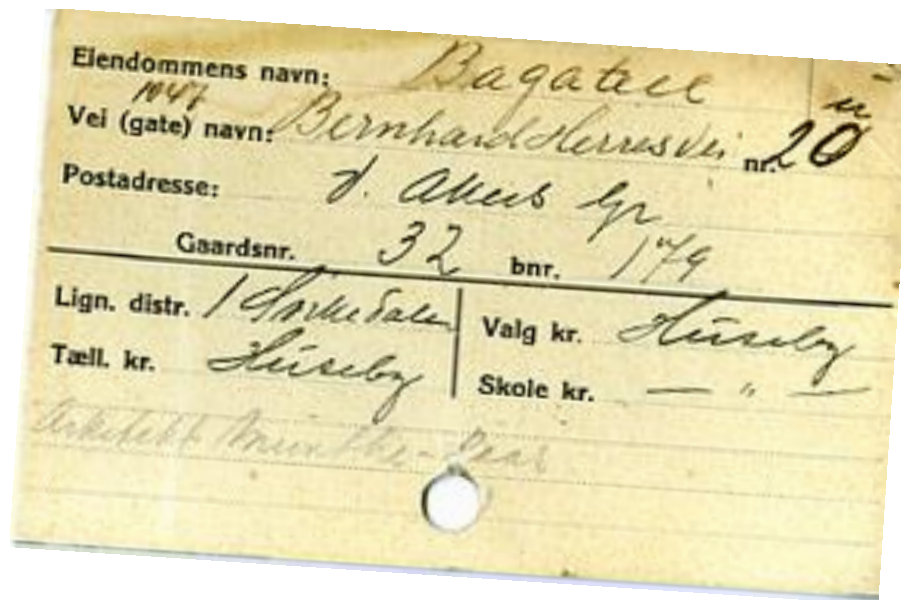 Eiendommens navn: Bagatell
1047
Vei (gate) navn: Bernhard Herres Vei nr. 20
Postadresse: V. Akers
Gaardsnr. 32 bnr. 179
Lign. distr. 1 Sørkedalen
Valg kr. Huseby
Tæll. kr. Huseby
Skole kr. — " —
Arkitekt Munthe-Kaas